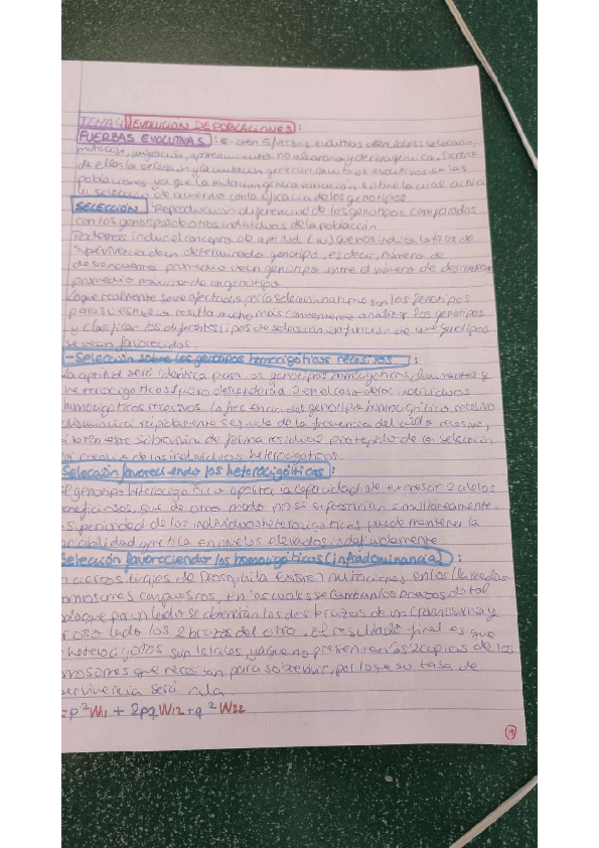 TEMA 4 EVOLUCIÓN DE POBLACIONES:
FUERZAS EVOLUTIVAS: Existen 5 fuerzas evolutivas esenciales: selección,
mutación, migración, apareamiento no aleatorio y deriva genética. Dentro
de ellas la selección y la mutación generan cambios evolutivos en las
poblaciones ya que la mutación genera variación sobre la cual actúa
la selección de acuerdo con la eficacia de los genotipos
SELECCIÓN: Reproducción diferencial de los genotipos comparados
con los genotipos de otros individuos de la población
Podemos incluir el concepto de aptitud (w) que nos indica la tasa de
supervivencia de un determinado genotipo, es decir, número de
descendientes promedio de un genotipo entre el número de descendientes
promedio máximo de un genotipo.
Lo que realmente se ve afectado por la selección natural son los fenotipos
para su estudio resulta mucho más conveniente analizar los genotipos
y clasificar los diferentes tipos de selección en función de qué genotipos
se vean favorecidos.
- Selección sobre los genotipos homocigóticos recesivos:
La aptitud será idéntica para los genotipos homocigóticos dominantes y
heterocigóticos 1 pero descenderá en el caso de los individuos
homocigóticos recesivos. La frecuencia del genotipo homocigótico recesivo
disminuirá rápidamente seguida de la frecuencia del alelo recesivo,
si bien este sobrevivirá de forma residual protegido de la selección
los individuos heterocigóticos.
Selección favoreciendo los heterocigóticos:
El genotipo heterocigótico aporta la capacidad de expresar 2 alelos
beneficiosos, que de otro modo no se expresarían simultáneamente.
superioridad de los individuos heterocigóticos puede mantener la
variabilidad genética en niveles elevados indefinidamente.
Selección favoreciendo los homocigóticos (infradominancia):
ciertos linajes de Drosophila existen mutaciones en los llamados
cromosomas compuestos, en los cuales se cambian los brazos de tal
que por un lado se obtendrán los dos brazos de un cromosoma y
otro lado los 2 brazos del otro. El resultado final es que
heterocigotos son letales, ya que no presentan las 2 copias de los
cromosomas que necesitan para sobrevivir, por lo que su tasa de
supervivencia será nula.
= p²W₁₁ + 2pqW₁₂ + q²W₂₂